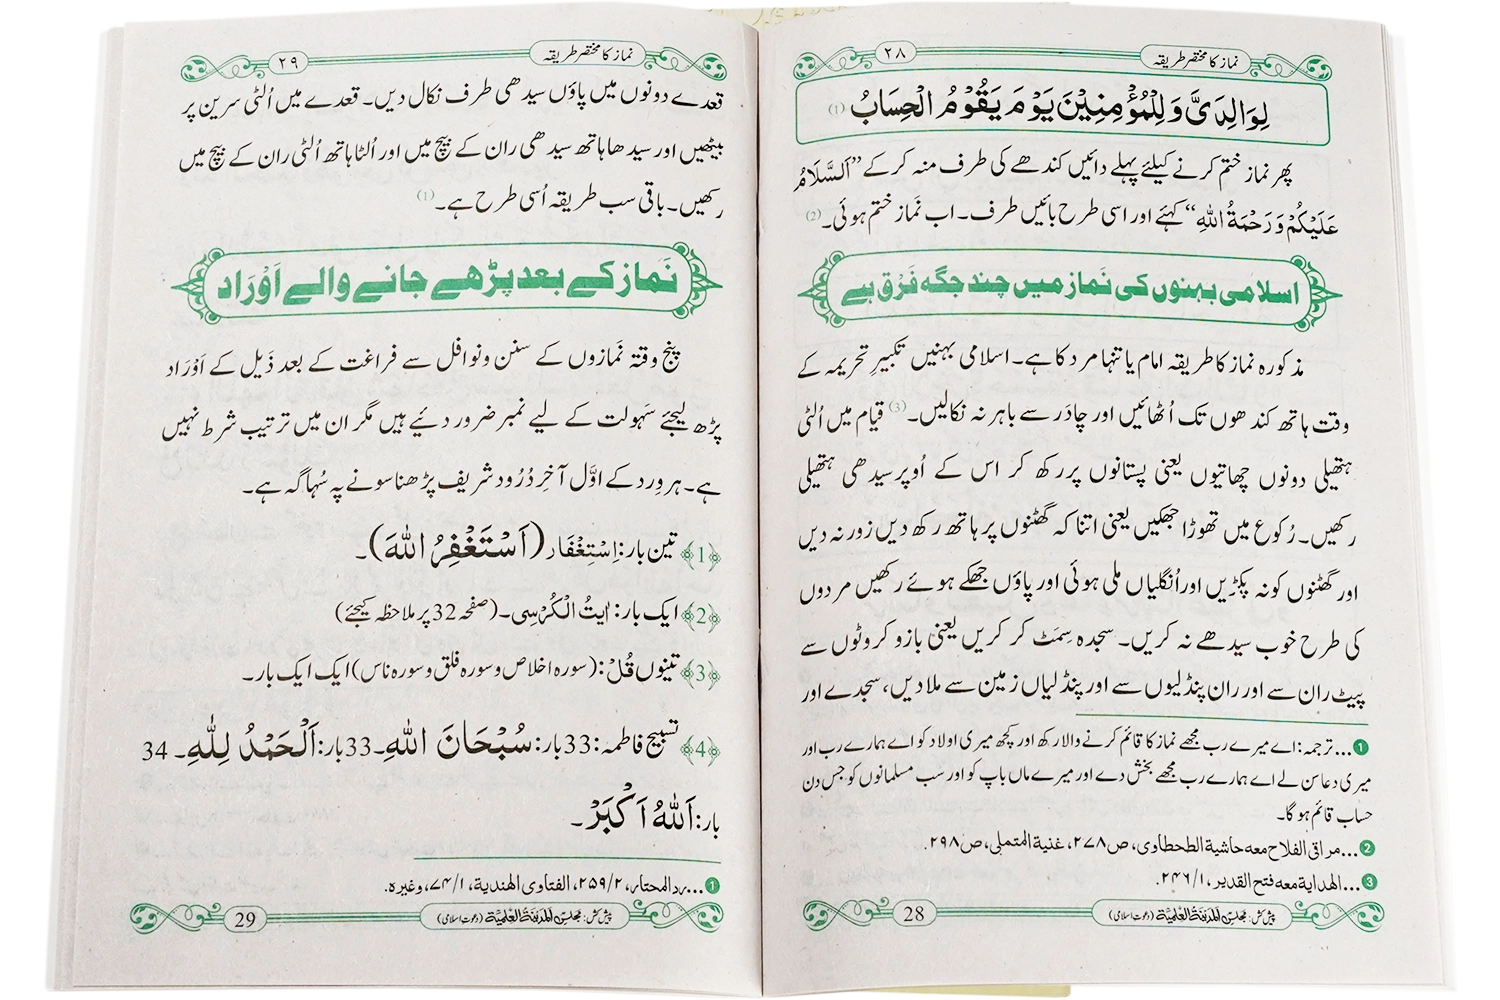 نماز کا مختصر طریقہ
۲۸
لِوَالِدَیَّ وَ لِلْمُؤْمِنِیْنَ یَوْمَ یَقُوْمُ الْحِسَابُ (1)
پھر نماز ختم کرنے کیلئے پہلے دائیں کندھے کی طرف منہ کر کے ”اَلسَّلَامُ
عَلَیْکُمْ وَ رَحْمَۃُ اللہِ“ کہئے اور اسی طرح بائیں طرف۔ اب نَماز ختم ہوئی۔ (2)
اسلامی بہنوں کی نَماز میں چند جگہ فَرْق ہے
مذکورہ نماز کا طریقہ امام یا تنہا مرد کا ہے۔ اسلامی بہنیں تکبیرِ تحریمہ کے
وقت ہاتھ کندھوں تک اُٹھائیں اور چادَر سے باہر نہ نکالیں۔ (3) قیام میں اُلٹی
ہتھیلی دونوں چھاتیوں یعنی پستانوں پر رکھ کر اس کے اُوپر سیدھی ہتھیلی
رکھیں۔ رُکوع میں تھوڑا جھکیں یعنی اتنا کہ گھٹنوں پر ہاتھ رکھ دیں زور نہ دیں
اور گھٹنوں کو نہ پکڑیں اور اُنگلیاں ملی ہوئی اور پاؤں جھکے ہوئے رکھیں مردوں
کی طرح خوب سیدھے نہ کریں۔ سجدہ سِمَٹ کر کریں یعنی بازو کروٹوں سے
پیٹ ران سے اور ران پنڈلیوں سے اور پنڈلیاں زمین سے ملا دیں، سجدے اور
1 ...ترجمہ: اے میرے رب مجھے نماز کا قائم کرنے والا رکھ اور کچھ میری اولاد کو اے ہمارے رب اور
میری دعا سن لے اے ہمارے رب مجھے بخش دے اور میرے ماں باپ کو اور سب مسلمانوں کو جس دن
حساب قائم ہو گا۔
2 ...مراقی الفلاح معہ حاشیۃ الطحطاوی، ص۲۷۸، غنیۃ المتملی، ص۲۹۸.
3 ...الھدایۃ معہ فتح القدیر، ۱/۲۴۶.
پیش کش: مجلس المدینۃ العلمیۃ (دعوتِ اسلامی)
28
نماز کا مختصر طریقہ
۲۹
قعدے دونوں میں پاؤں سیدھی طرف نکال دیں۔ قعدے میں اُلٹی سرین پر
بیٹھیں اور سیدھا ہاتھ سیدھی ران کے بیچ میں اور اُلٹا ہاتھ اُلٹی ران کے بیچ میں
رکھیں۔ باقی سب طریقہ اُسی طرح ہے۔ (1)
نَماز کے بعد پڑھے جانے والے اَوْرَاد
پنج وقتہ نَمازوں کے سنن و نوافل سے فراغت کے بعد ذَیل کے اَوْرَاد
پڑھ لیجئے سَہولت کے لیے نمبر ضرور دئیے ہیں مگر ان میں ترتیب شرط نہیں
ہے۔ ہر وِرد کے اوَّل آخِر دُرُود شریف پڑھنا سونے پہ سُہاگہ ہے۔
﴿1﴾ تین بار: اِسْتِغْفَار (اَسْتَغْفِرُ اللہَ)۔
﴿2﴾ ایک بار: اٰیتُ الْکُرْسِی۔ (صفحہ 32 پر ملاحظہ کیجئے)
﴿3﴾ تینوں قُلْ: (سورہ اخلاص و سورہ فلق و سورہ ناس) ایک ایک بار۔
﴿4﴾ تسبیح فاطمہ: 33بار: سُبْحَانَ اللہِ۔ 33بار: اَلْحَمْدُ لِلّٰہِ۔ 34
بار: اَللّٰہُ اَکْبَرْ۔
1 ...رد المحتار، ۲/۲۵۹، الفتاوی الھندیۃ، ۱/۷۴، وغیرہ.
پیش کش: مجلس المدینۃ العلمیۃ (دعوتِ اسلامی)
29